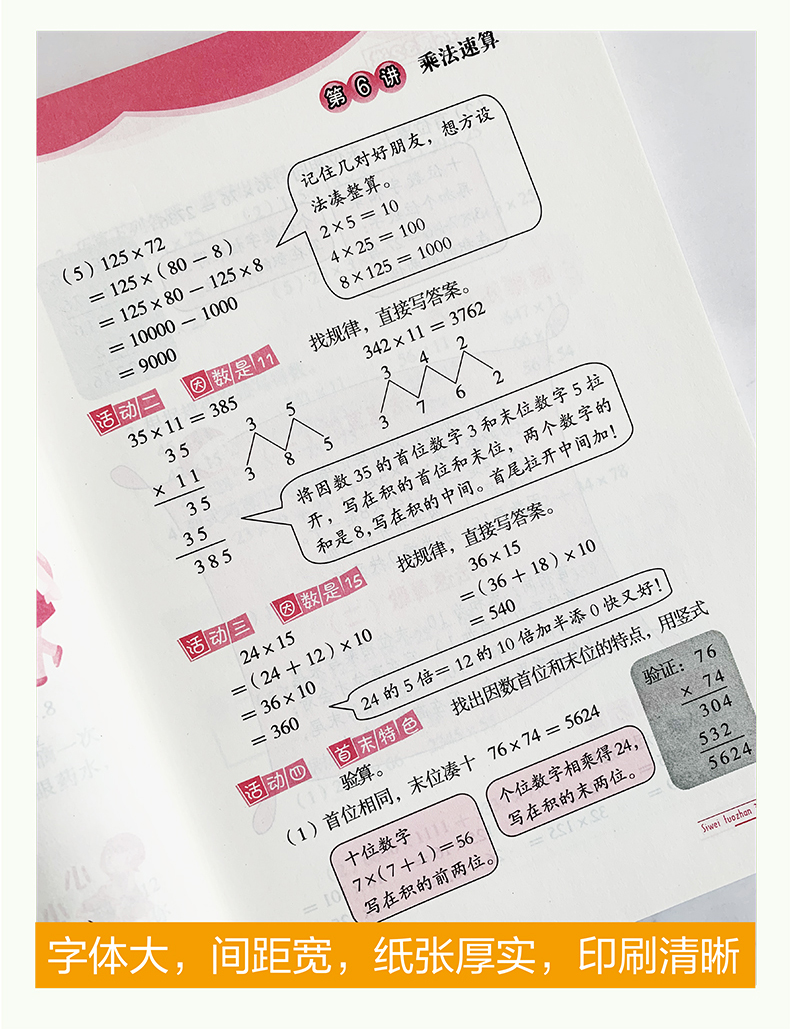 第6讲 乘法速算
记住几对好朋友，想方设
法凑整算。
2×5＝10
4×25＝100
8×125＝1000
（5）125×72
＝125×（80－8）
＝125×80－125×8
＝10000－1000
＝9000
活动二 因数是11 找规律，直接写答案。
35×11＝385
35
×11
35
35
385
3 5
3 8 5
342×11＝3762
3 4 2
3 7 6 2
将因数35的首位数字3和末位数字5拉
开，写在积的首位和末位，两个数字的
和是8，写在积的中间。首尾拉开中间加！
活动三 因数是15 找规律，直接写答案。
24×15
＝（24＋12）×10
＝36×10
＝360
36×15
＝（36＋18）×10
＝540
24的5倍＝12的10倍加半添0快又好！
活动四 首末特色 找出因数首位和末位的特点，用竖式
验算。
（1）首位相同，末位凑十 76×74＝5624
验证：76
×74
304
532
5624
十位数字
7×（7＋1）＝56
写在积的前两位。
个位数字相乘得24，
写在积的末两位。
Siwei tuozhan
字体大，间距宽，纸张厚实，印刷清晰